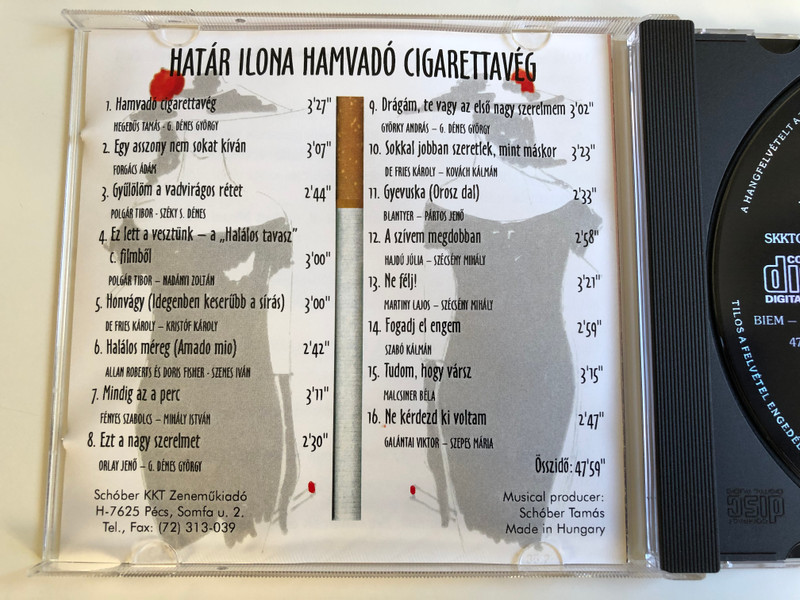 HATÁR ILONA HAMVADÓ CIGARETTAVÉG
1. Hamvadó cigarettavég 3'27"
HEGEDŰS TAMÁS - G. DÉNES GYÖRGY
2. Egy asszony nem sokat kíván 3'07"
FORGÁCS ÁDÁM
3. Gyűlölöm a vadvirágos rétet 2'44"
POLGÁR TIBOR - SZÉKY S. DÉNES
4. Ez lett a vesztünk – a „Halálos tavasz"
c. filmből 3'00"
POLGÁR TIBOR – NADÁNYI ZOLTÁN
5. Honvágy (Idegenben keserűbb a sírás) 3'00"
DE FRIES KÁROLY – KRISTÓF KÁROLY
6. Halálos méreg (Amado mio) 2'42"
ALLAN ROBERTS ÉS DORIS FISHER - SZENES IVÁN
7. Mindig az a perc 3'11"
FÉNYES SZABOLCS – MIHÁLY ISTVÁN
8. Ezt a nagy szerelmet 2'30"
ORLAY JENŐ – G. DÉNES GYÖRGY
Schóber KKT Zeneműkiadó
H-7625 Pécs, Somfa u. 2.
Tel., Fax: (72) 313-039
9. Drágám, te vagy az első nagy szerelmem 3'02"
GYÖRKY ANDRÁS – G. DÉNES GYÖRGY
10. Sokkal jobban szeretlek, mint máskor 3'23"
DE FRIES KÁROLY – KOVÁCH KÁLMÁN
11. Gyevuska (Orosz dal) 2'33"
BLANTYER – PÁRTOS JENŐ
12. A szívem megdobban 2'58"
HAJDÚ JÚLIA – SZÉCSÉNY MIHÁLY
13. Ne félj! 3'21"
MARTINY LAJOS – SZÉCSÉNY MIHÁLY
14. Fogadj el engem 2'59"
SZABÓ KÁLMÁN
15. Tudom, hogy vársz 3'15"
MALCSINER BÉLA
16. Ne kérdezd ki voltam 2'47"
GALÁNTAI VIKTOR – SZEPES MÁRIA
Összidő: 47'59"
Musical producer:
Schóber Tamás
Made in Hungary
A HANGFELVÉTELT A
SKKTC
DIGITAL
BIEM –
47
TILOS A FELVÉTEL ENGEDÉ